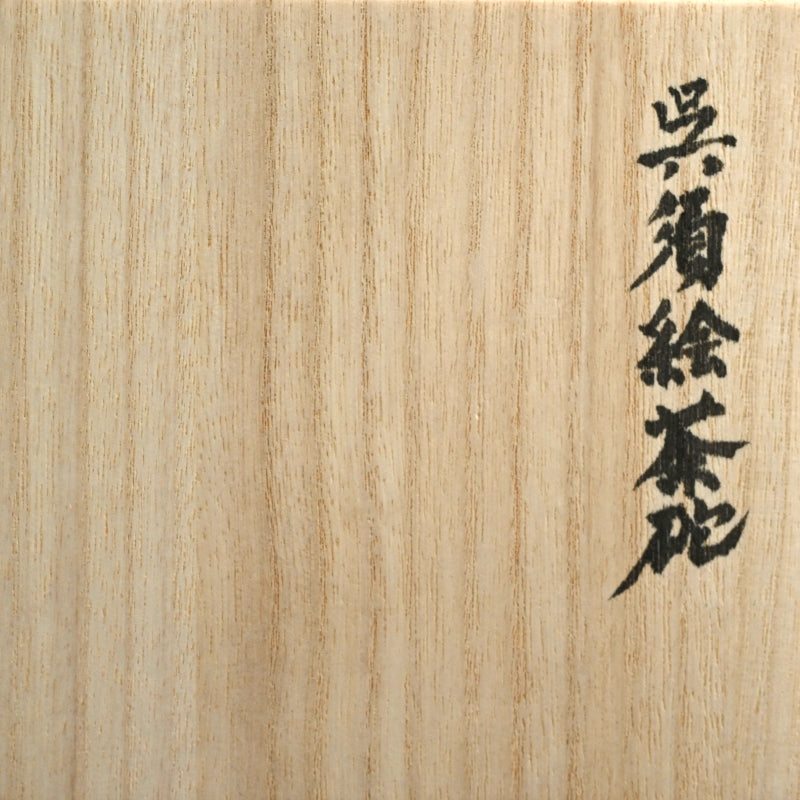 呉須絵茶碗